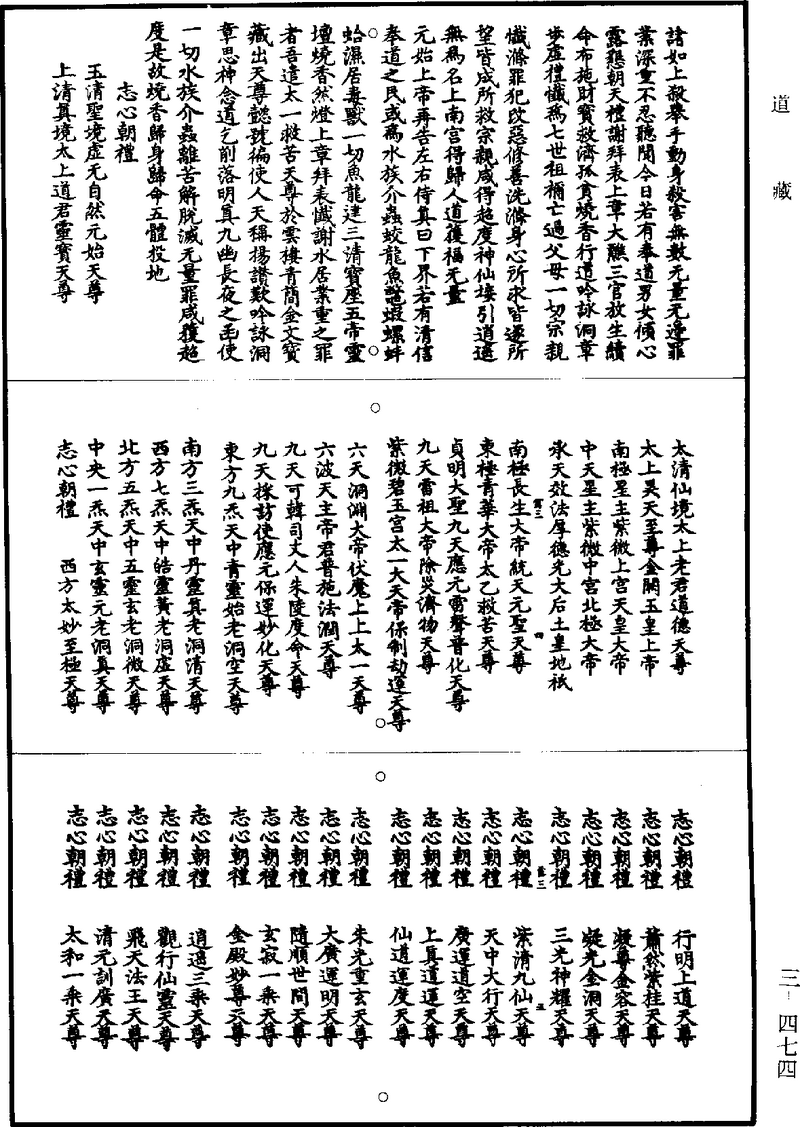 道藏
三-四七四
諸如上殺舉手動身殺害無數无量无邊罪
業深重不忍聽聞今日若有奉道男女傾心
露懇朝天禮謝拜表上章大醮三官放生續
命布施財寶救濟孤貧燒香行道吟詠洞章
步虛禮懺爲七世祖禰亡過父母一切宗親
懺滌罪犯改惡修善洗滌身心所求皆遂所
望皆成所救宗親咸得超度神仙接引逍遥
無爲名上南宮得歸人道獲福无量
元始上帝再告左右侍真曰下界若有清信
奉道之民或爲水族介蟲蛟龍魚鼈蝦螺蚌
蛤濕居毒獸一切魚龍達三清寶座五帝靈
壇燒香然燈上章拜表懺謝水居業重之罪
者吾遣太一救苦天尊於雲樓青簡金文寶
藏出天尊懿號徧使人天稱揚讚歎吟詠洞
章思神念道乞削落明真九幽長夜之函使
一切水族介蟲離苦解脫滅无量罪咸獲超
度是故燒香歸身歸命五體投地
志心朝禮
玉清聖境虛无自然元始天尊
上清真境太上道君靈寶天尊
太清仙境太上老君道德天尊
太上昊天至尊金闕玉皇上帝
南極星主紫微上宮天皇大帝
中天星主紫微中宮北極大帝
承天效法厚德光大后土皇地祇
南極長生大帝統天元聖天尊
東極青華大帝太乙救苦天尊
貞明大聖九天應元雷聲普化天尊
九天雷祖大帝除災濟物天尊
紫微碧玉宮太一大天帝保制劫運天尊
六天洞淵大帝伏魔上上太一天尊
六波天主帝君普施法潤天尊
九天可韓司丈人朱陵度命天尊
九天採訪使應元保運妙化天尊
東方九炁天中青靈始老洞空天尊
南方三炁天中丹靈真老洞清天尊
西方七炁天中皓靈黃老洞虛天尊
北方五炁天中五靈玄老洞微天尊
中央一炁天中玄靈元老洞真天尊
志心朝禮 西方太妙至極天尊
志心朝禮 行明上道天尊
志心朝禮 蕭然紫挂天尊
志心朝禮 凝尊金容天尊
志心朝禮 凝光金洞天尊
志心朝禮 三光神耀天尊
志心朝禮 紫清九仙天尊
志心朝禮 天中大行天尊
志心朝禮 廣運道空天尊
志心朝禮 上真道運天尊
志心朝禮 仙道運度天尊
志心朝禮 朱光重玄天尊
志心朝禮 大廣運明天尊
志心朝禮 隨順世間天尊
志心朝禮 玄寂一乘天尊
志心朝禮 金殿妙尊天尊
志心朝禮 逍遥三乘天尊
志心朝禮 觀行仙靈天尊
志心朝禮 飛天法王天尊
志心朝禮 清元訓廣天尊
志心朝禮 太和一乘天尊